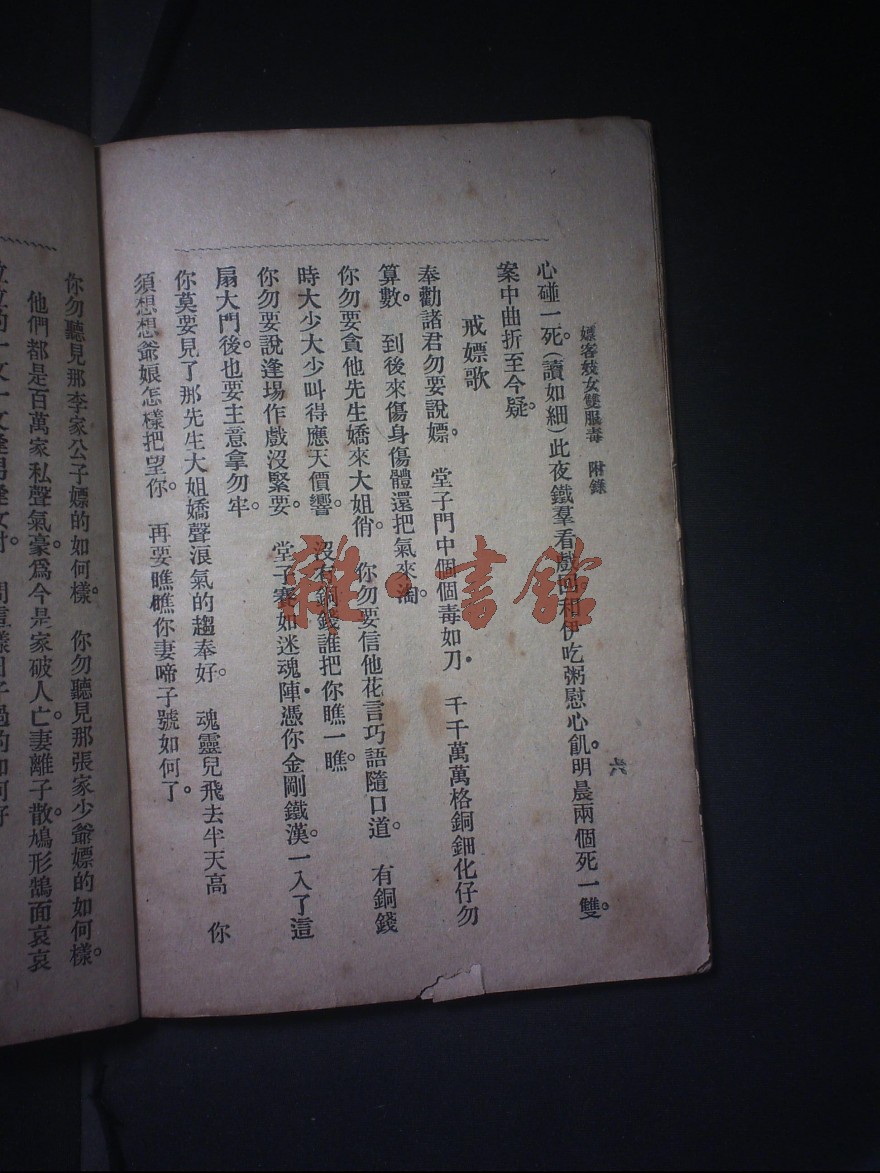 嫖客妓女雙服毒　附錄
六
心碰一死。(讀如細)此夜鐵羣看戲回和伊吃粥慰心飢。明晨兩個死一雙。
案中曲折至今疑。
戒嫖歌
奉勸諸君勿要說嫖。　堂子門中個個毒如刀．　千千萬萬格銅鈿化仔勿
算數。　到後來傷身傷體還把氣來淘。
你勿要貪他先生嬌來大姐俏。　你勿要信他花言巧語隨口道。　有銅錢
時大少大少叫得應天價響。　沒有銅錢誰把你瞧一瞧。
你勿要說逢場作戲沒緊要。　堂子賽如迷魂陣．憑你金剛鐵漢。一入了這
扇大門。後也要主意拿勿牢。
你莫要見了那先生大姐嬌聲浪氣的趨奉好。　魂靈兒飛去半天高　你
須想想爺娘怎樣把望你。　再要瞧瞧你妻啼子號如何了。
你勿聽見那李家公子嫖的如何樣。　你勿聽見那張家少爺嫖的如何樣。
他們都是百萬家私聲氣豪。爲今是家破人亡。妻離子散。鳩形鵠面哀哀
雜·書館